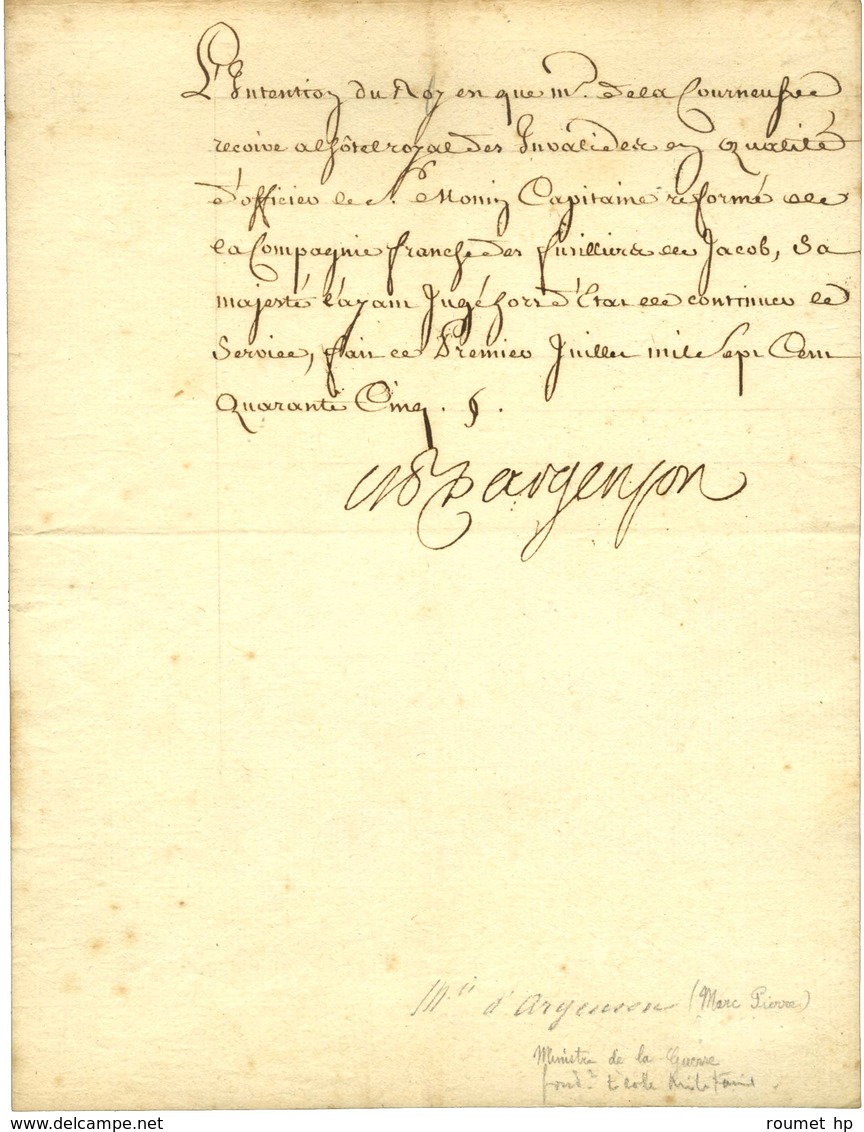 L'Intention du Roy est que Mr. de la Courneufve
recoive a l'hôtel royal des Invalides en Qualité
d'officier le S. Monin Capitaine reformé de
la Compagnie franche des fusilliers de Jacob, Sa
majesté l'ayant Jugé hors d'Etat de continuer le
Service, fait ce Premier Juillet mil Sept Cent
Quarante Cinq. §.
M. D'argenson
M.is d'Argenson (Marc Pierre)
Ministre de la Guerre
fond.r Ecole Militaire.
roumet hp